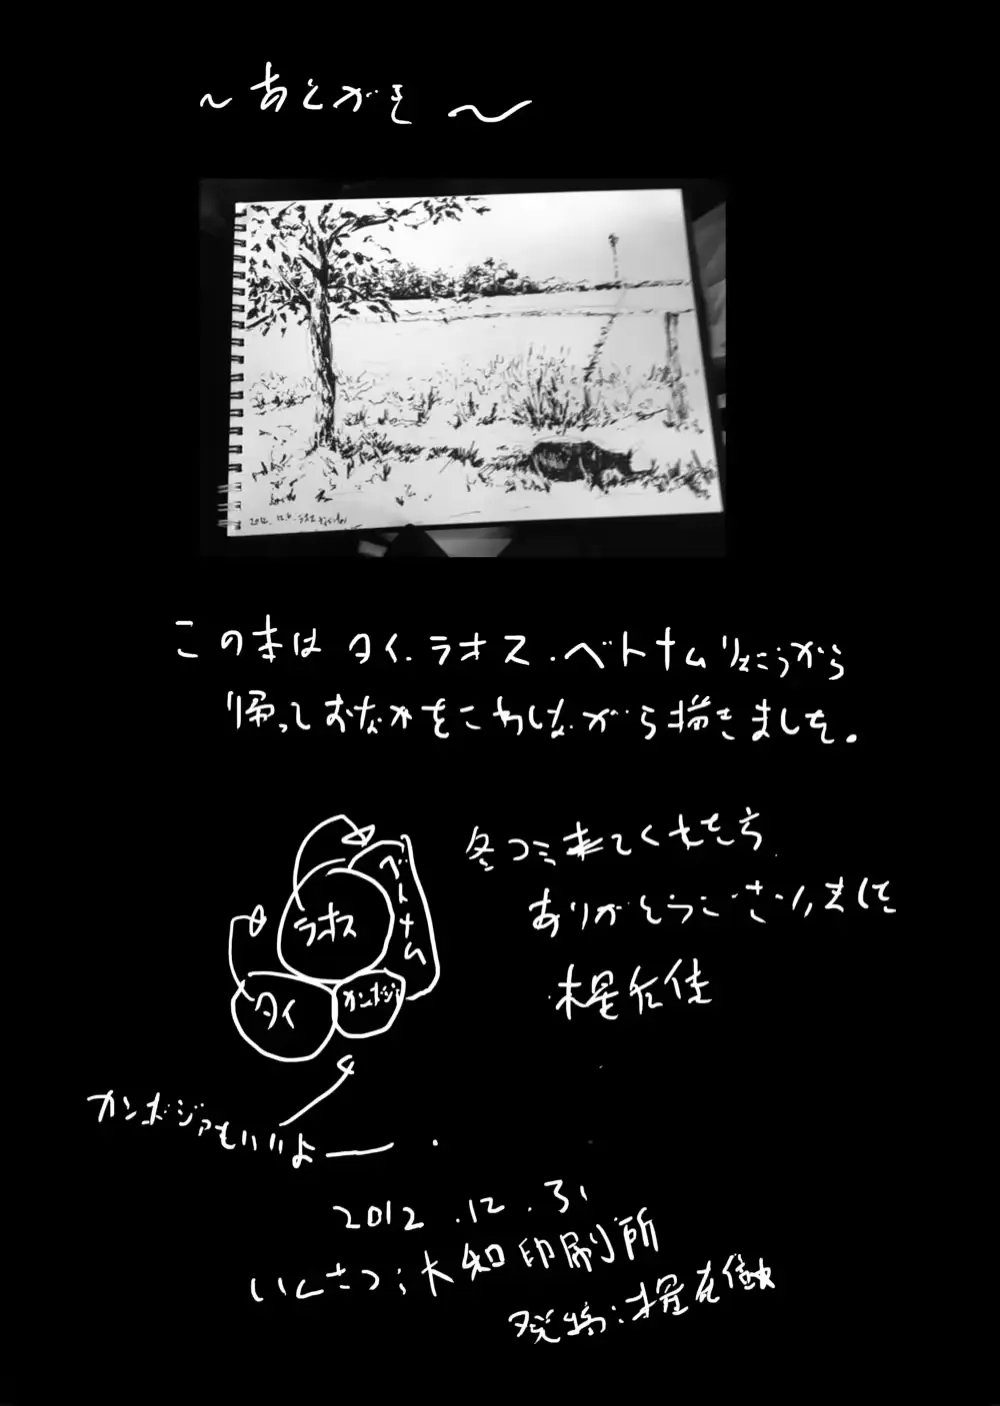 ～あとがき～
2012.12.
この本はタイ.ラオス.ベトナムりょこうから
帰っておなかをこわしながら描きました。
冬コミ来てくれた方
ありがとうございました
ベトナム
ラオス
タイ
カンボジア
カンボジアもいいよー.
2012.12.31
いんさつ:大知印刷所
発行: